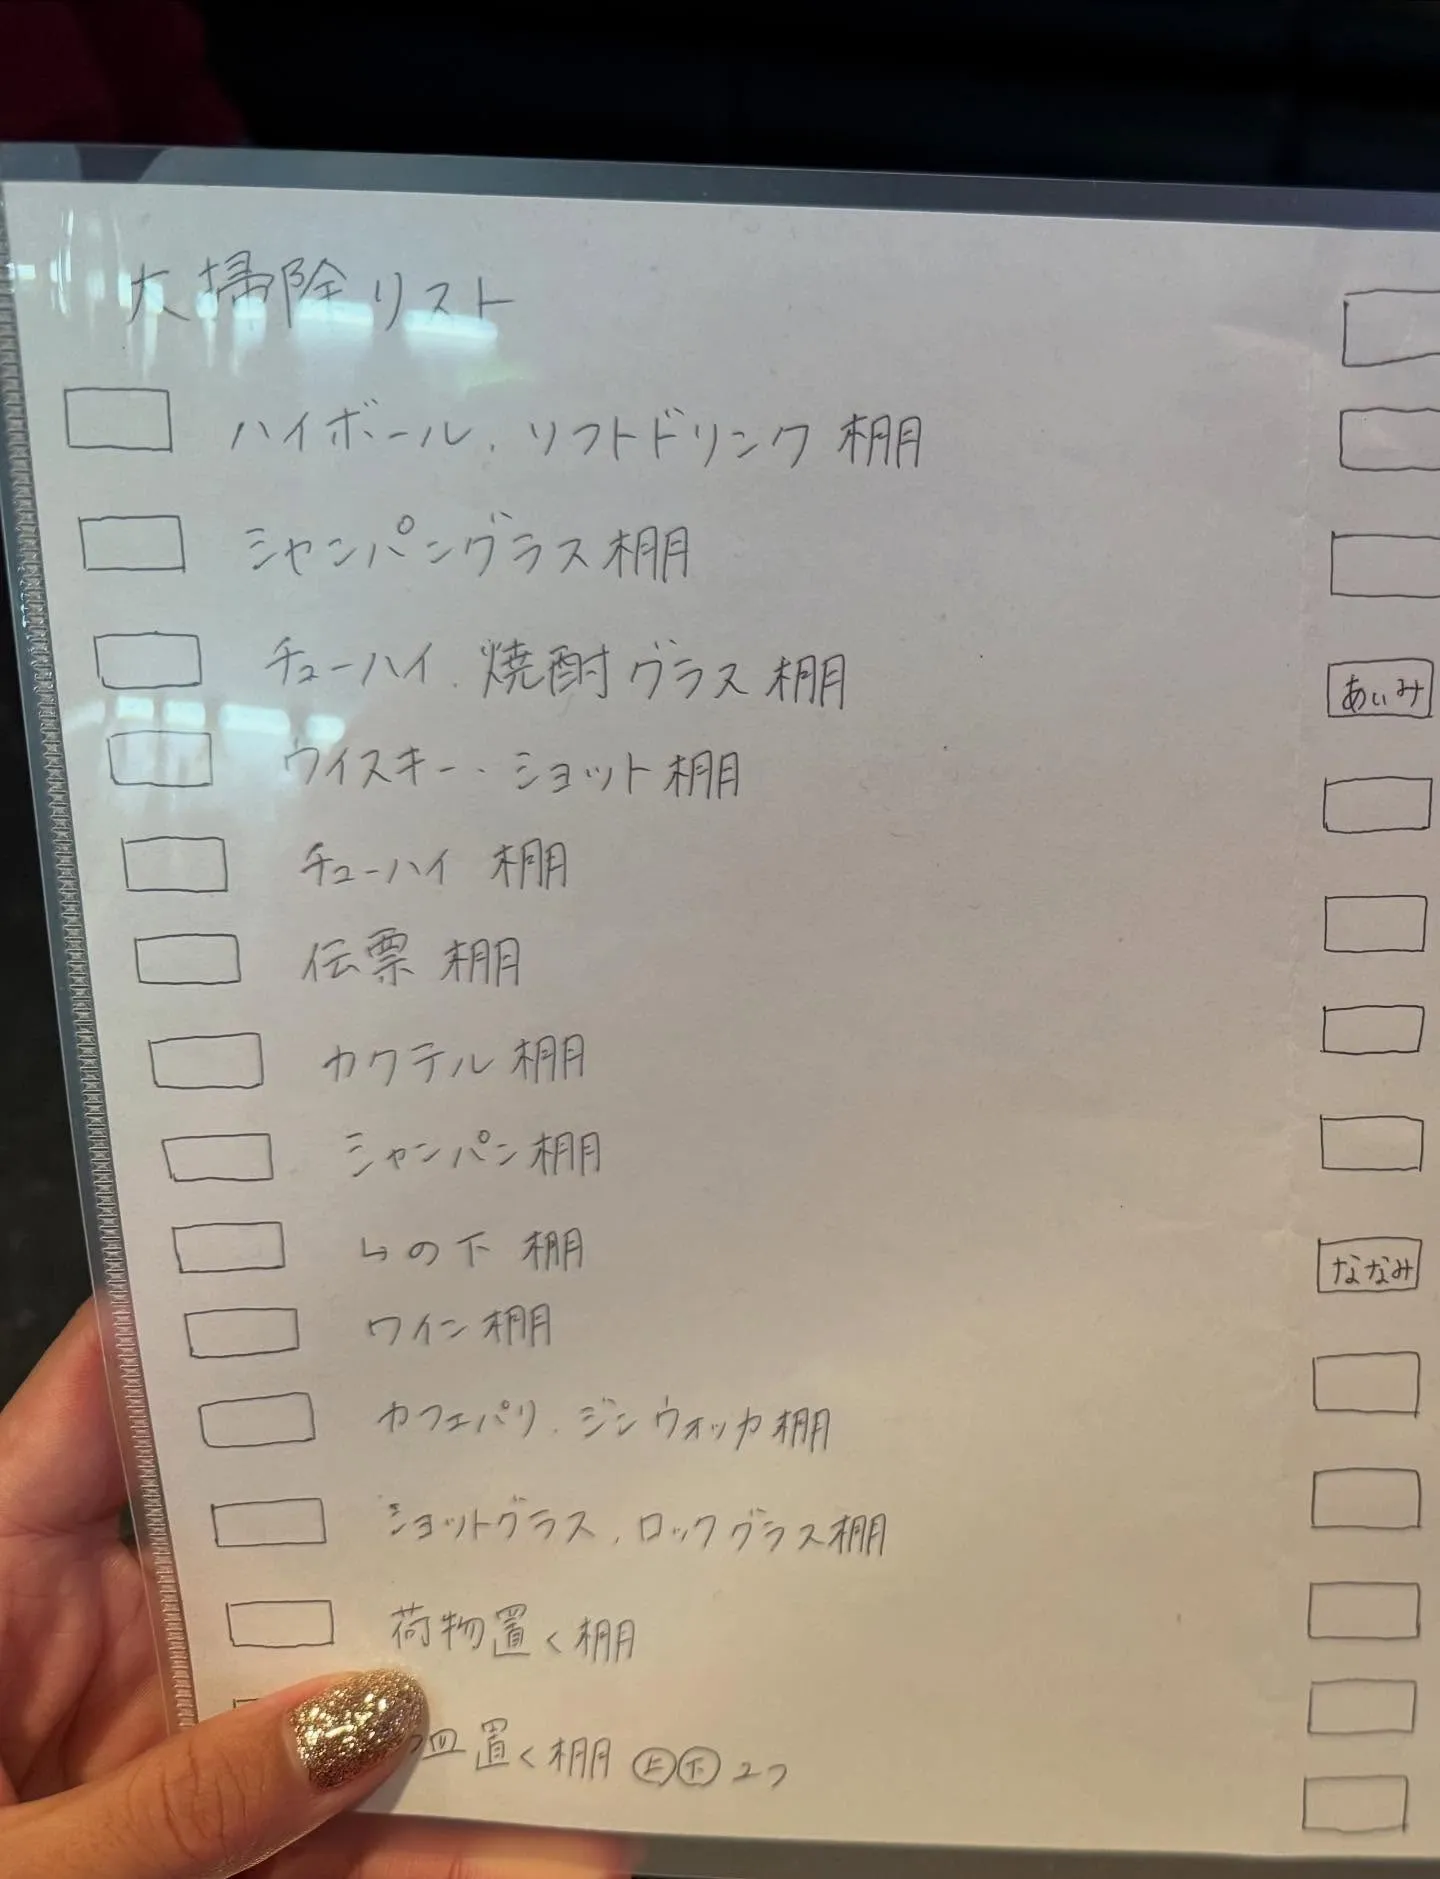 大掃除リスト
ハイボール、ソフトドリンク 棚
シャンパングラス棚
チューハイ、焼酎グラス 棚
ウイスキー、ショット 棚
チューハイ 棚
伝票 棚
カクテル 棚
シャンパン棚
↳の下 棚
ワイン棚
カフェパリ、ジン ウォッカ棚
ショットグラス、ロックグラス棚
荷物置く棚
皿置く棚 上下 2つ
あいみ
ななみ